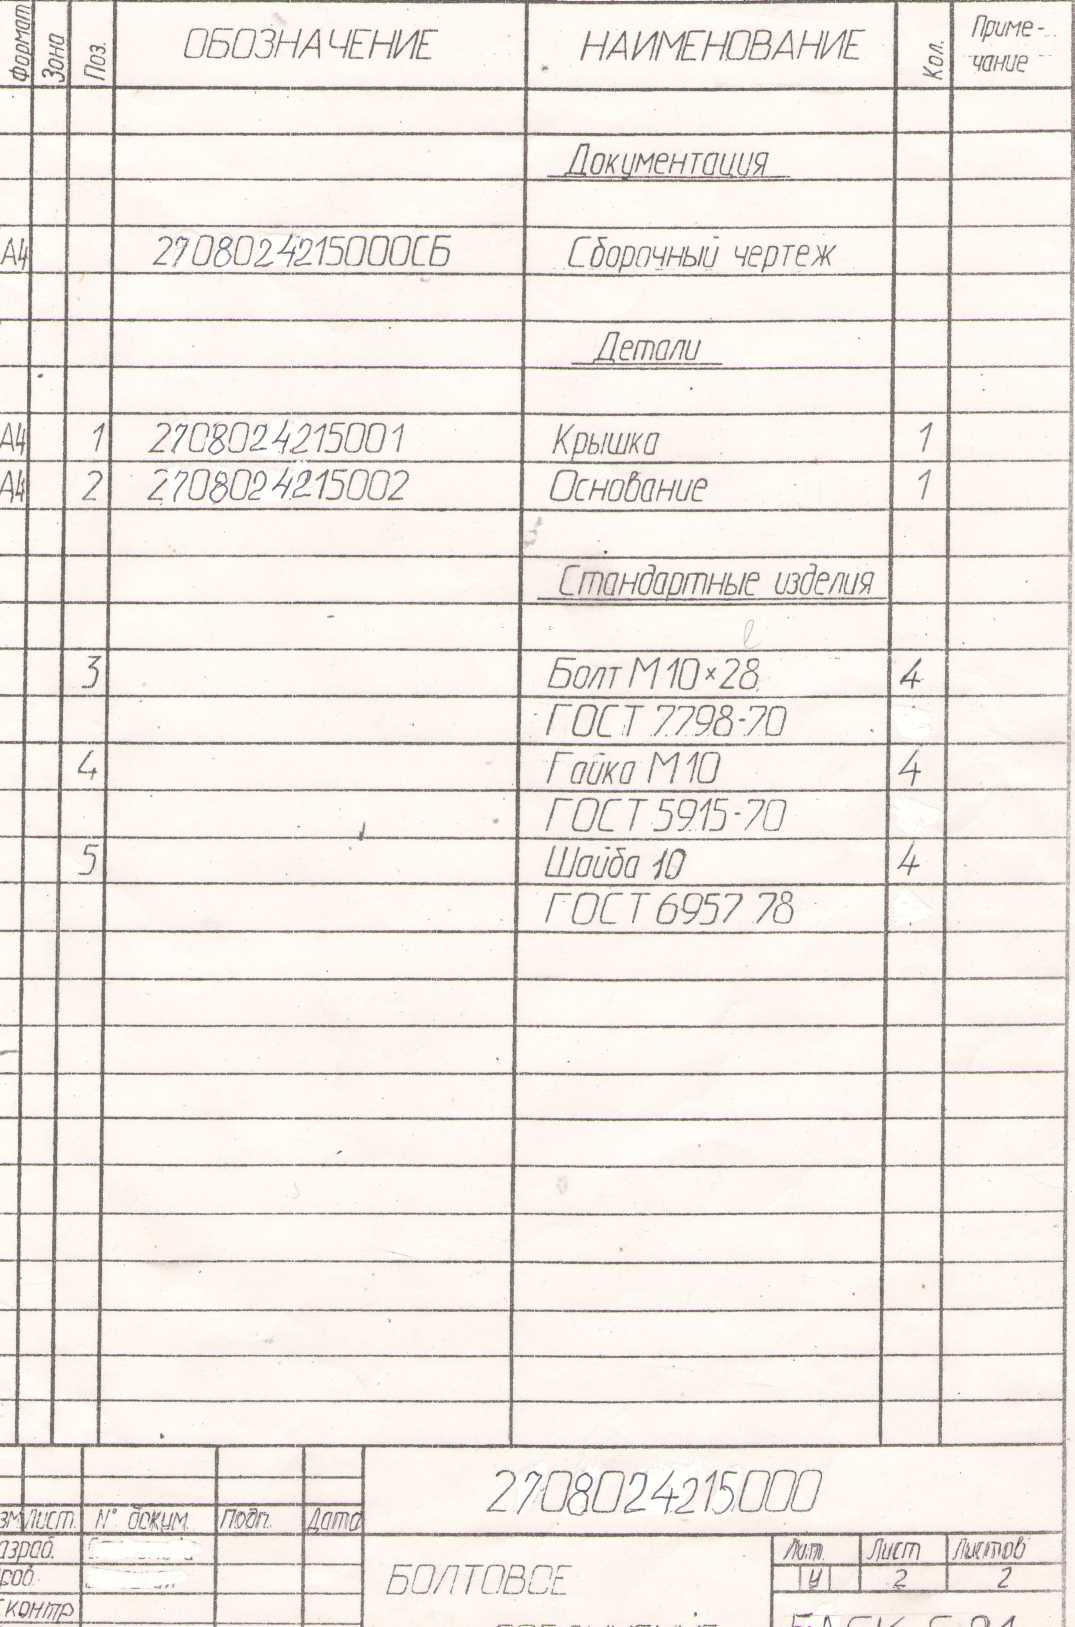 Формат Зона Поз. ОБОЗНАЧЕНИЕ НАИМЕНОВАНИЕ Кол. Приме-
чание
Документация
А4 2708024215000СБ Сборочный чертеж
Детали
А4 1 2708024215001 Крышка 1
А4 2 2708024215002 Основание 1
Стандартные изделия
3 Болт М10×28 4
ГОСТ 7798-70
4 Гайка М10 4
ГОСТ 5915-70
5 Шайба 10 4
ГОСТ 6957 78
2708024215000
зм Лист. N° докум. Подп. Дата
азраб.
ров.
БОЛТОВОЕ
Лит. Лист Листов
У 2 2
контр